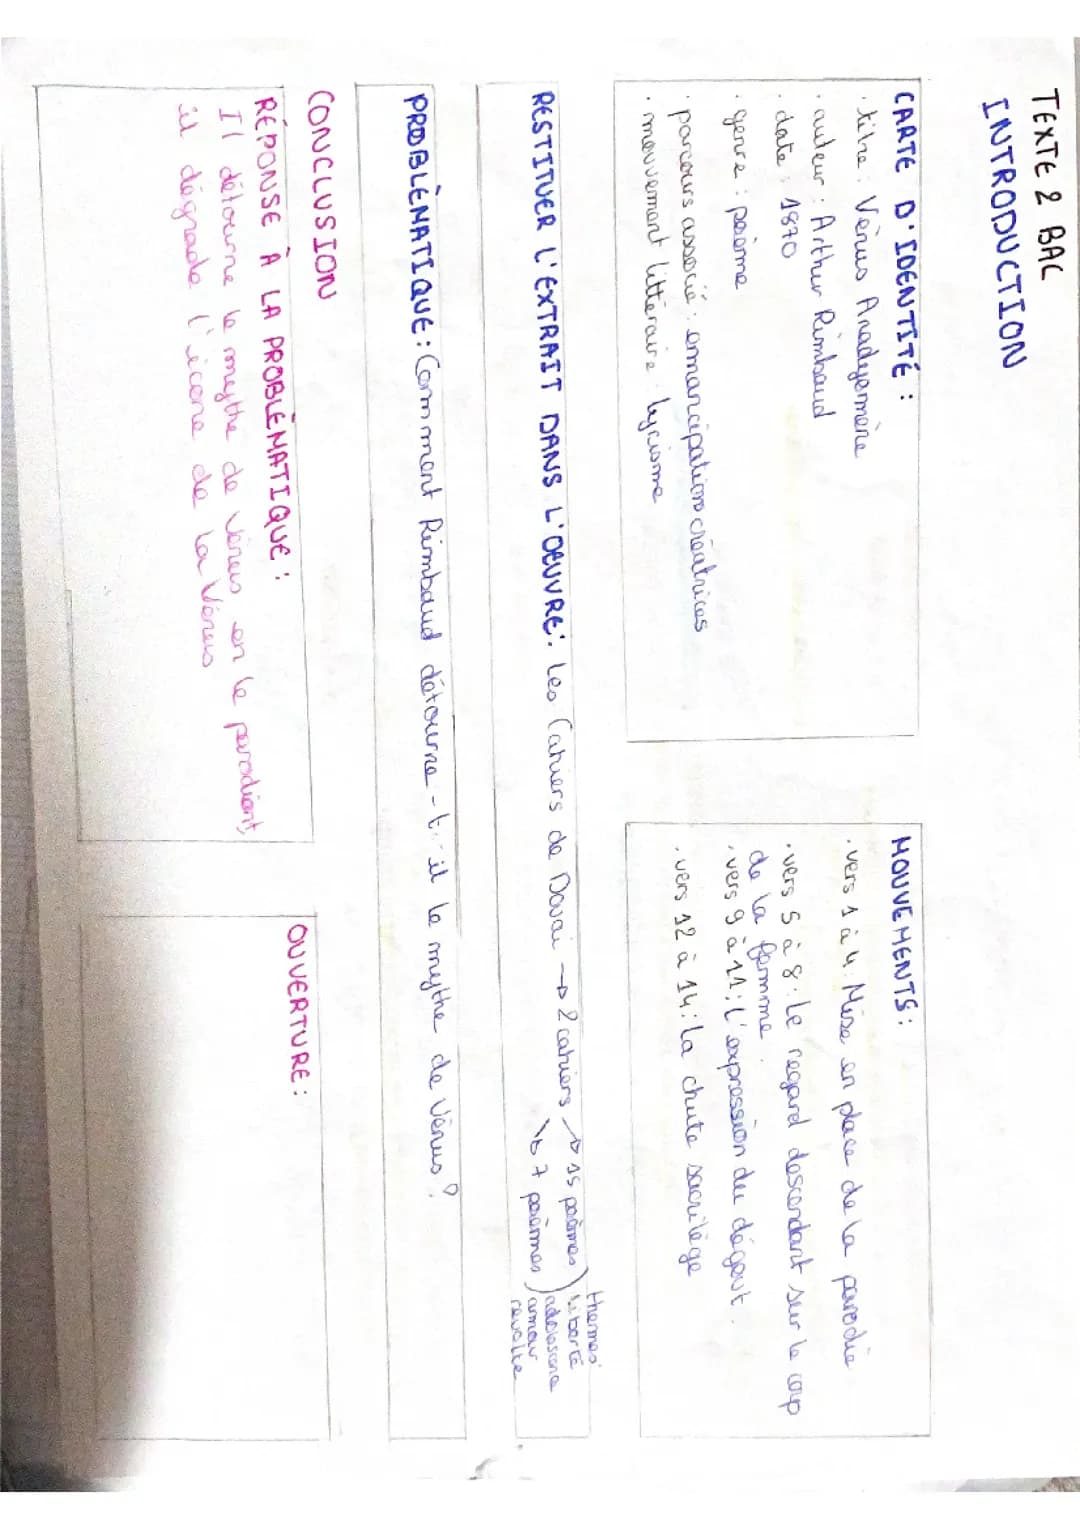 TEXTE 2 BAC
INTRODUCTION
CARTE D'IDENTITÉ :
· titre : Vénus Anadyomène
· auteur : Arthur Rimbaud
· date : 1870
· genre : poème
· parcours associé : émancipations créatrices
· mouvement littéraire : lyrisme
MOUVEMENTS :
· vers 1 à 4 : Mise en place de la parodie
· vers 5 à 8 : le regard descendant sur le corp
de la femme
· vers 9 à 11 : l'expression du dégout
· vers 12 à 14 : la chute sacrilège
RESTITUER L'EXTRAIT DANS L'OEUVRE : Les Cahiers de Douai → 2 cahiers → 15 poèmes
→ 7 poèmes
thèmes :
liberté
adolescence
amour
revolte
PROBLÈMATIQUE : Comment Rimbaud détourne-t-il le mythe de Vénus ?
CONCLUSION
RÉPONSE À LA PROBLÈMATIQUE :
Il détourne le mythe de Vénus en le parodiant,
il dégrade l'icone de la Vénus
OUVERTURE :